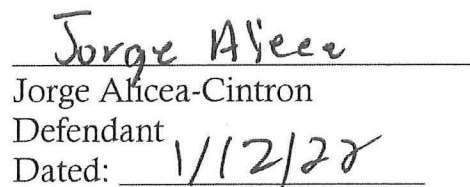 Jorge Alicea
Jorge Alicea-Cintron
Defendant
Dated: 1/12/22